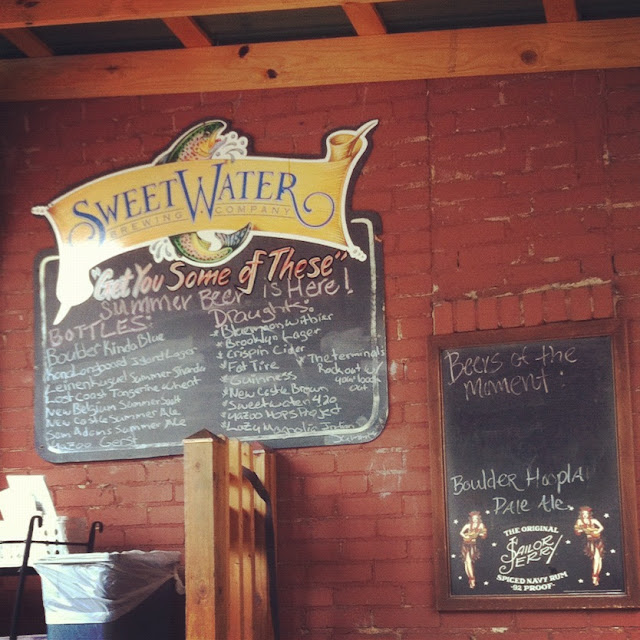 SWEETWATER
BREWING COMPANY
"Get You Some of These"
Summer Beer is Here!
BOTTLES:
Boulder Kinda Blue
Kona Longboard Island Lager
Leinenkugel Summer Shandy
Lost Coast Tangerine Wheat
New Belgium Somersault
New Castle Summer Ale
Sam Adams Summer Ale
Yazoo Gerst
Draughts:
*Brooklyn Lager
*Crispin Cider
*Fat Tire
*Guinness
*New Castle Brown
*Sweetwater 420
*Yazoo Hops Project
*Lazy Magnolia
*The terminals
Rock out w/
your
out
Beers of the
Moment:
Boulder Hoopla
Pale Ale.
THE ORIGINAL
SAILOR
JERRY
SPICED NAVY RUM
-92 PROOF-